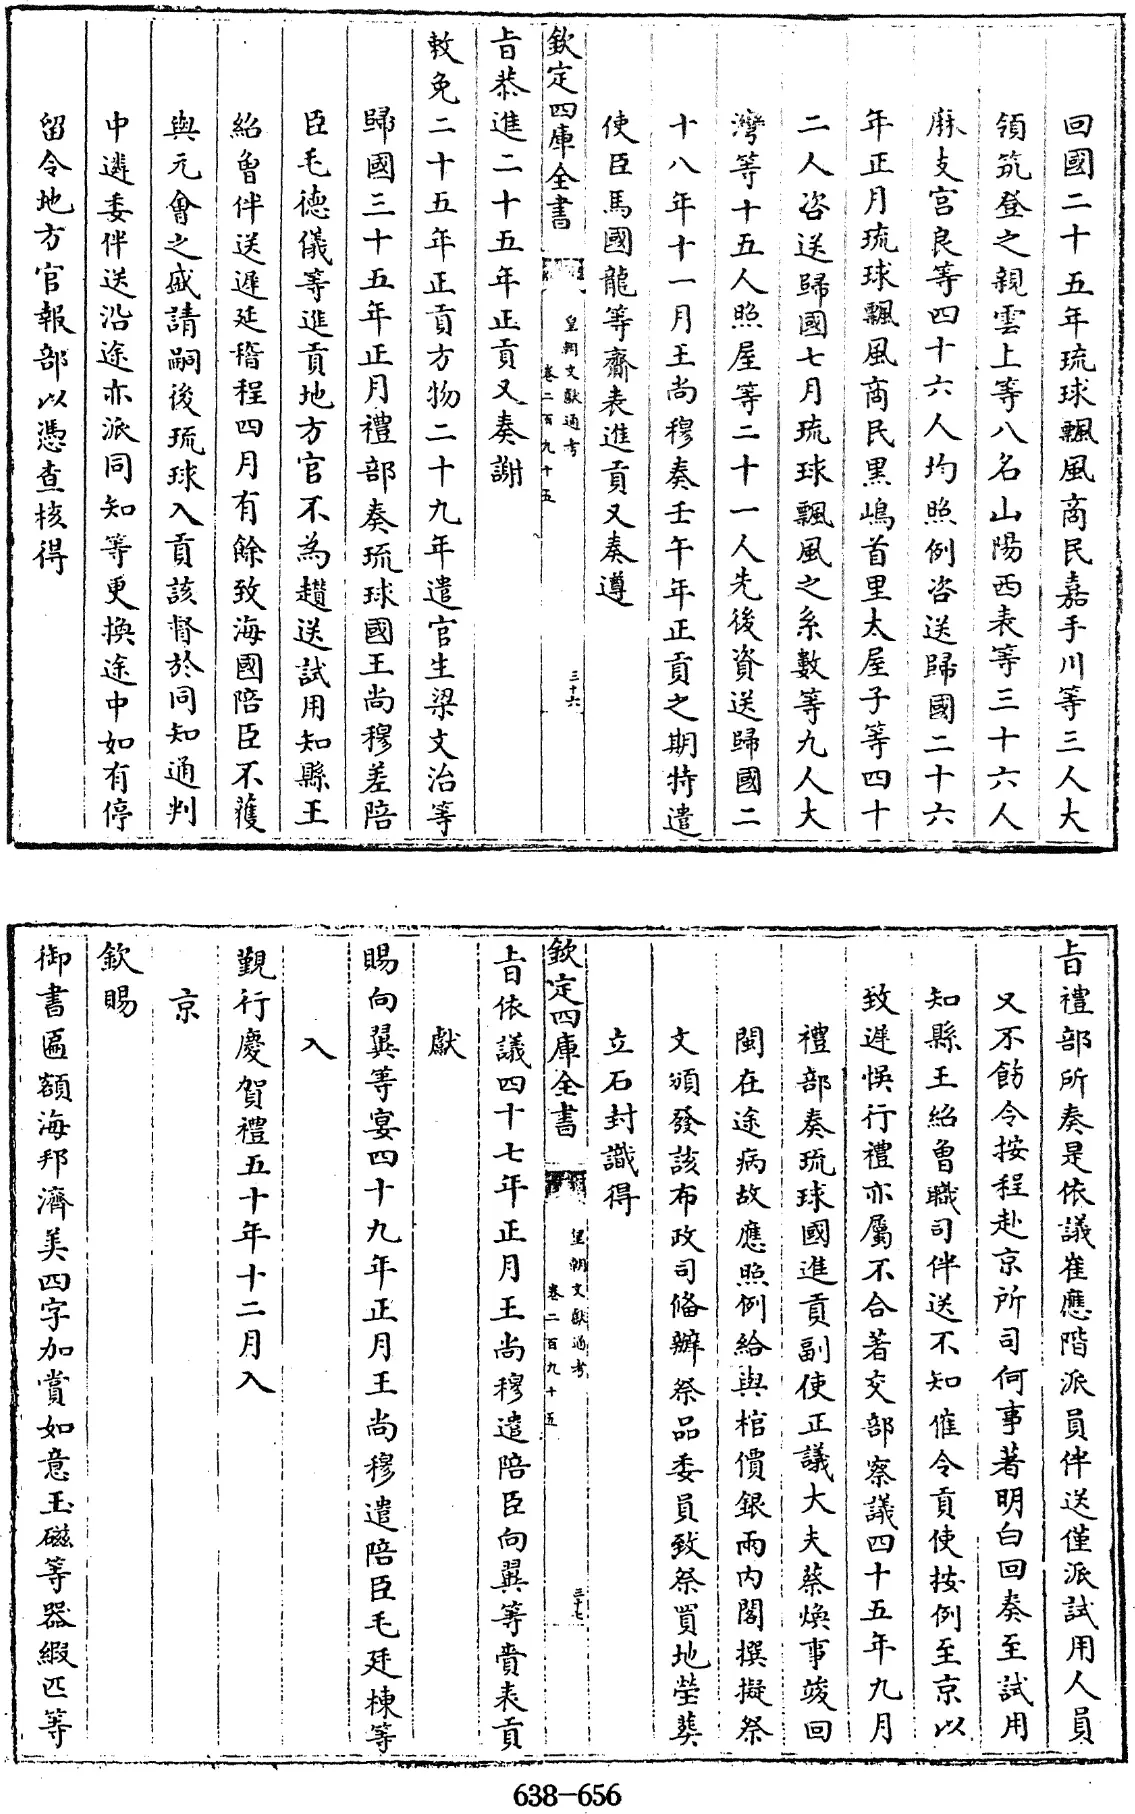 回國二十五年琉球飄風商民嘉手川等三人大
領筑登之親雲上等八名山陽西表等三十六人
麻支宫良等四十六人均照例咨送歸國二十六
年正月琉球飄風商民黒嶋首里太屋子等四十
二人咨送歸國七月琉球飄風之系數等九人大
灣等十五人照屋等二十一人先後資送歸國二
十八年十一月王尚穆奏壬午年正貢之期特遣
使臣馬國龍等齎表進貢又奏遵
欽定四庫全書
皇朝文獻通考
卷二百九十五
三十六
㫖恭進二十五年正貢又奏謝
敕免二十五年正貢方物二十九年遣官生梁文治等
歸國三十五年正月禮部奏琉球國王尚穆差陪
臣毛德儀等進貢地方官不為趲送試用知縣王
紹曾伴送遲延稽程四月有餘致海國陪臣不獲
與元會之盛請嗣後琉球入貢該督於同知通判
中遴委伴送沿途亦派同知等更換途中如有停
留令地方官報部以憑查核得
㫖禮部所奏是依議崔應階派員伴送僅派試用人員
又不飭令按程赴京所司何事著明白回奏至試用
知縣王紹曾職司伴送不知催令貢使按例至京以
致遲悞行禮亦屬不合著交部察議四十五年九月
禮部奏琉球國進貢副使正議大夫蔡煥事竣回
閩在途病故應照例給與棺價銀兩内閣撰擬祭
文頒發該布政司俻辦祭品委員致祭買地塋葬
立石封識得
欽定四庫全書
皇朝文獻通考
卷二百九十五
三十七
㫖依議四十七年正月王尚穆遣陪臣向翼等賫表貢
獻
賜向翼等宴四十九年正月王尚穆遣陪臣毛廷棟等
入
覲行慶賀禮五十年十二月入
京
欽賜
御書匾額海邦濟美四字加賞如意玉磁等器緞匹等
638-656